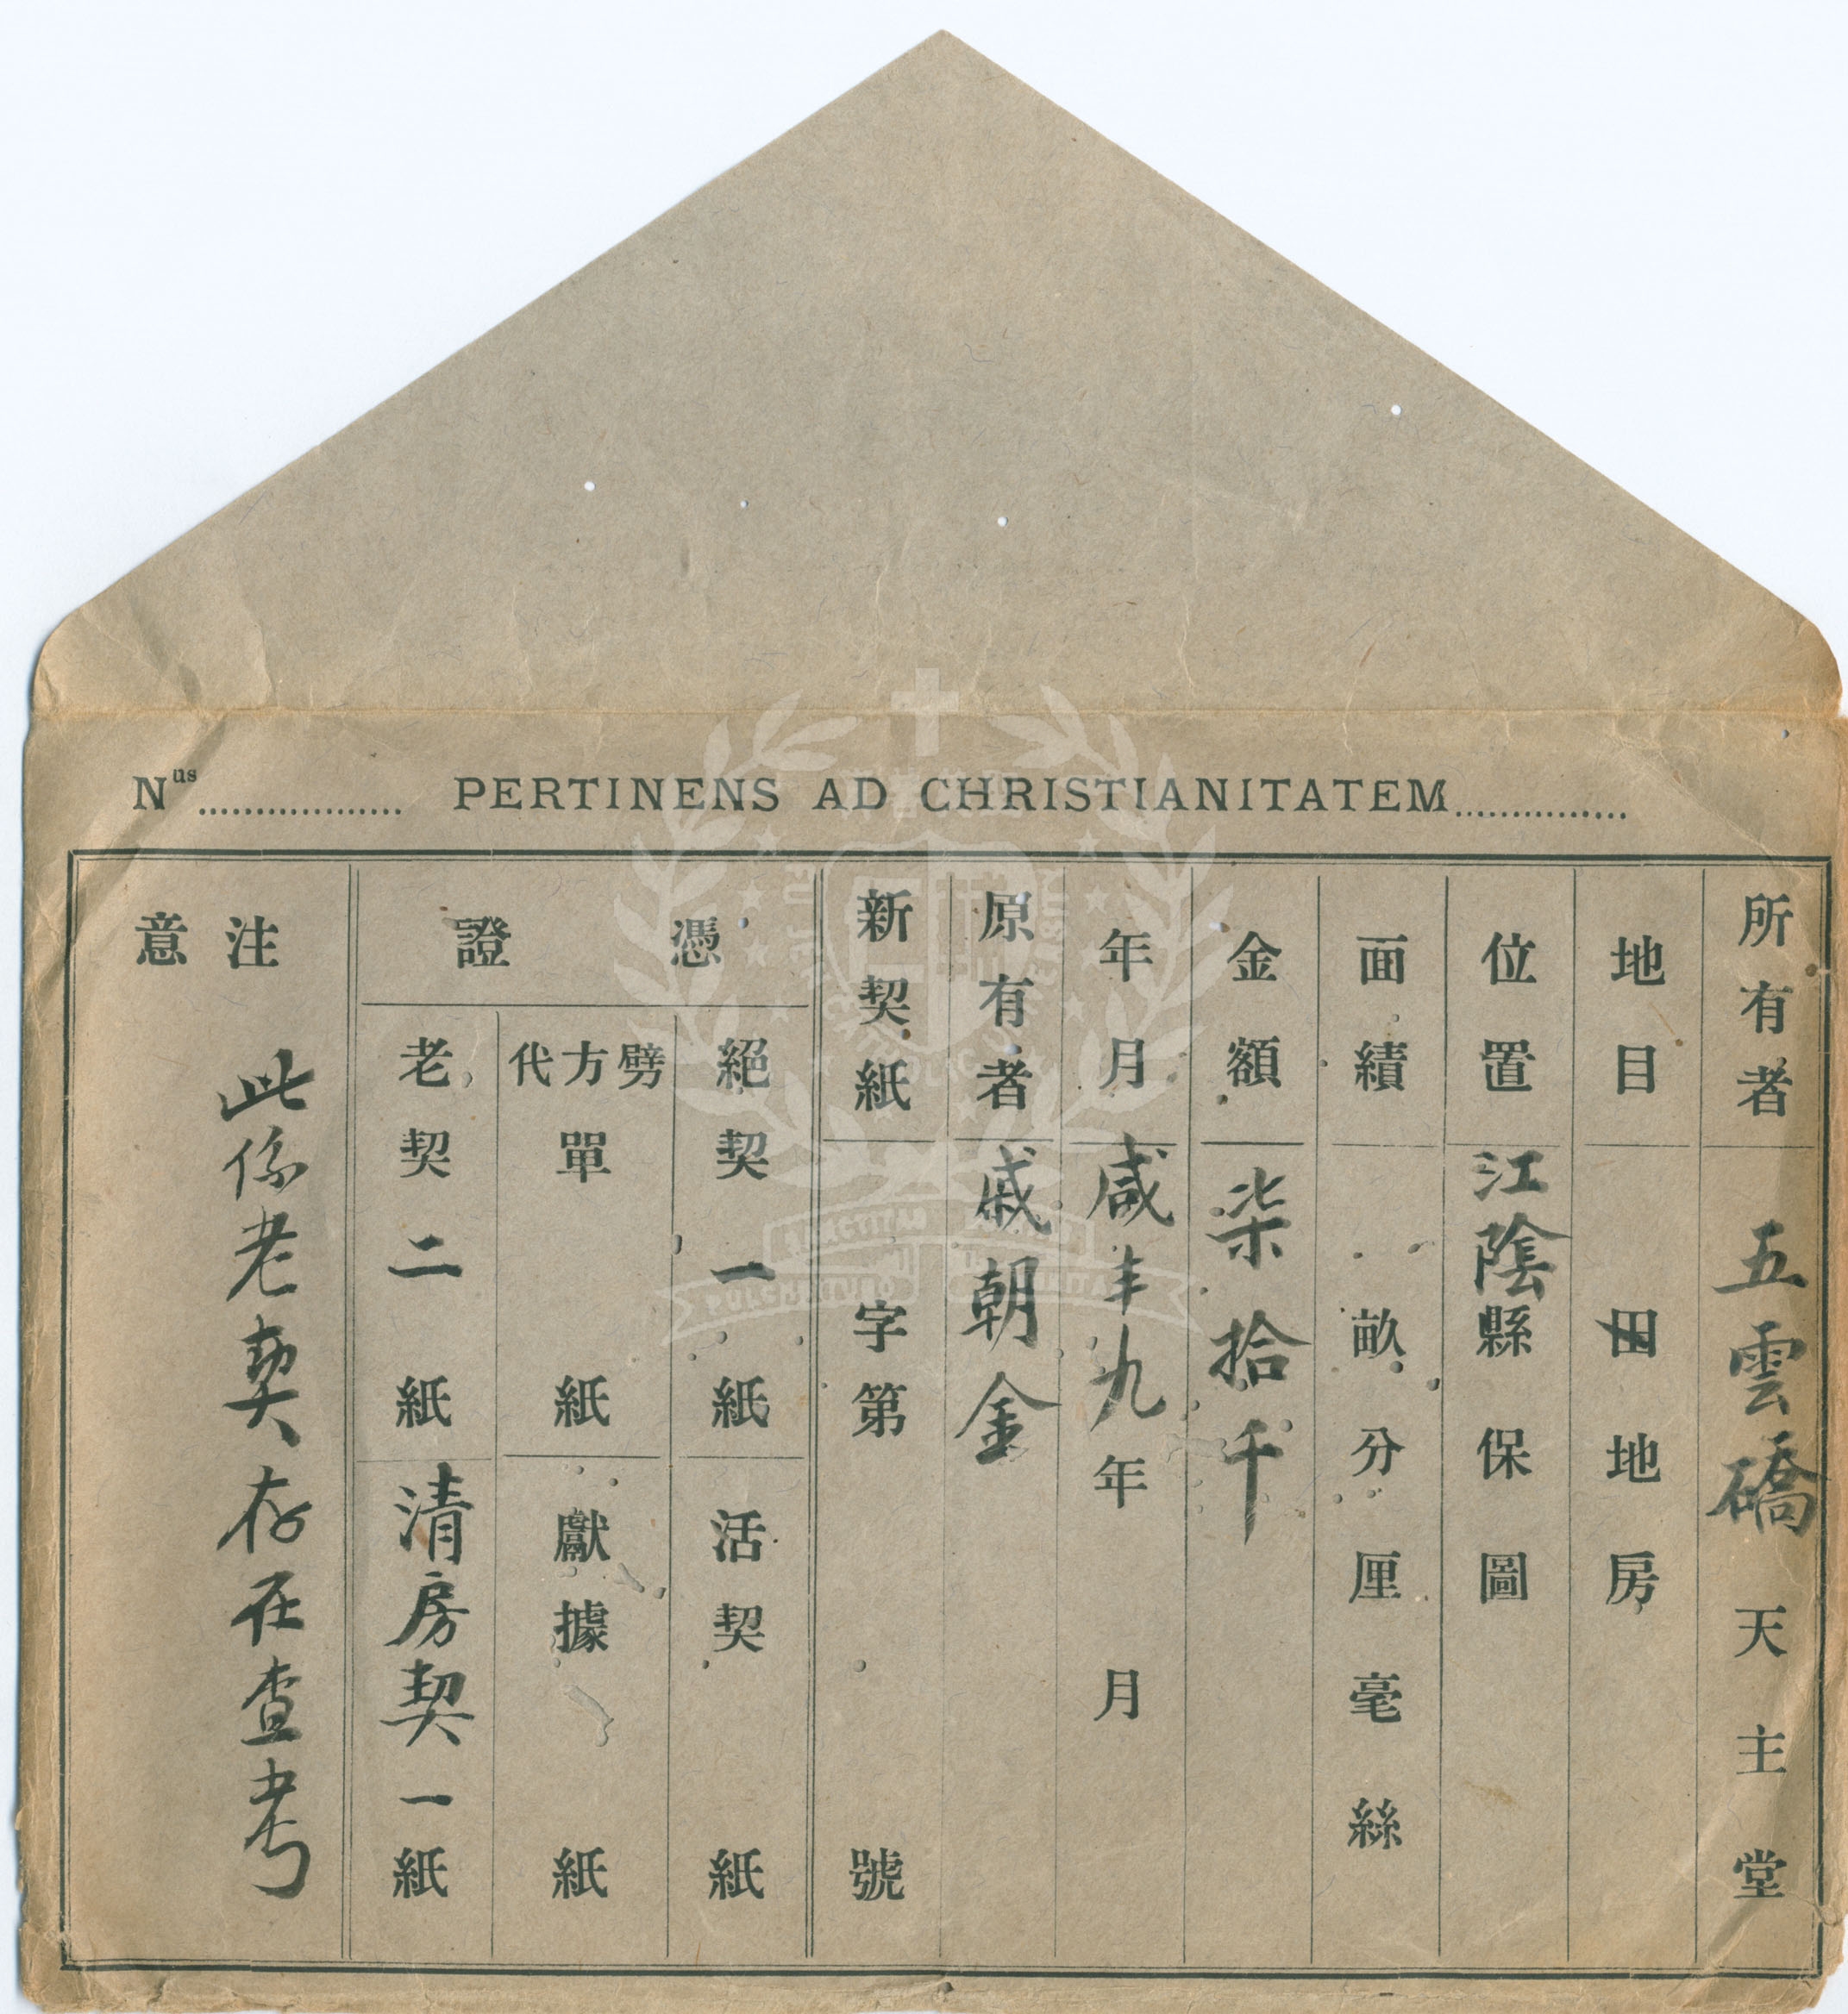 Nus.................. PERTINENS AD CHRISTIANITATEM...............
所有者 五雲礄天主堂
地目 田地房
位置 江陰縣保圖
面績 畝分厘毫絲
金額 柒拾千
年月 咸丰九年月
原有者 戚朝金
新契紙 字第號
憑證
絕契一紙 活契紙
劈方代單紙 獻據紙
老契二紙 清房契一紙
注意 此係老契存在查考